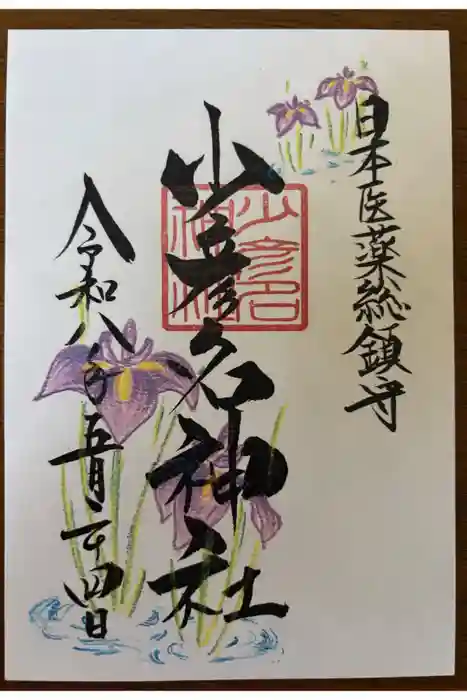 日本医薬総鎮守
少彦名神社
少彦名
神社
令和八年五月二十四日